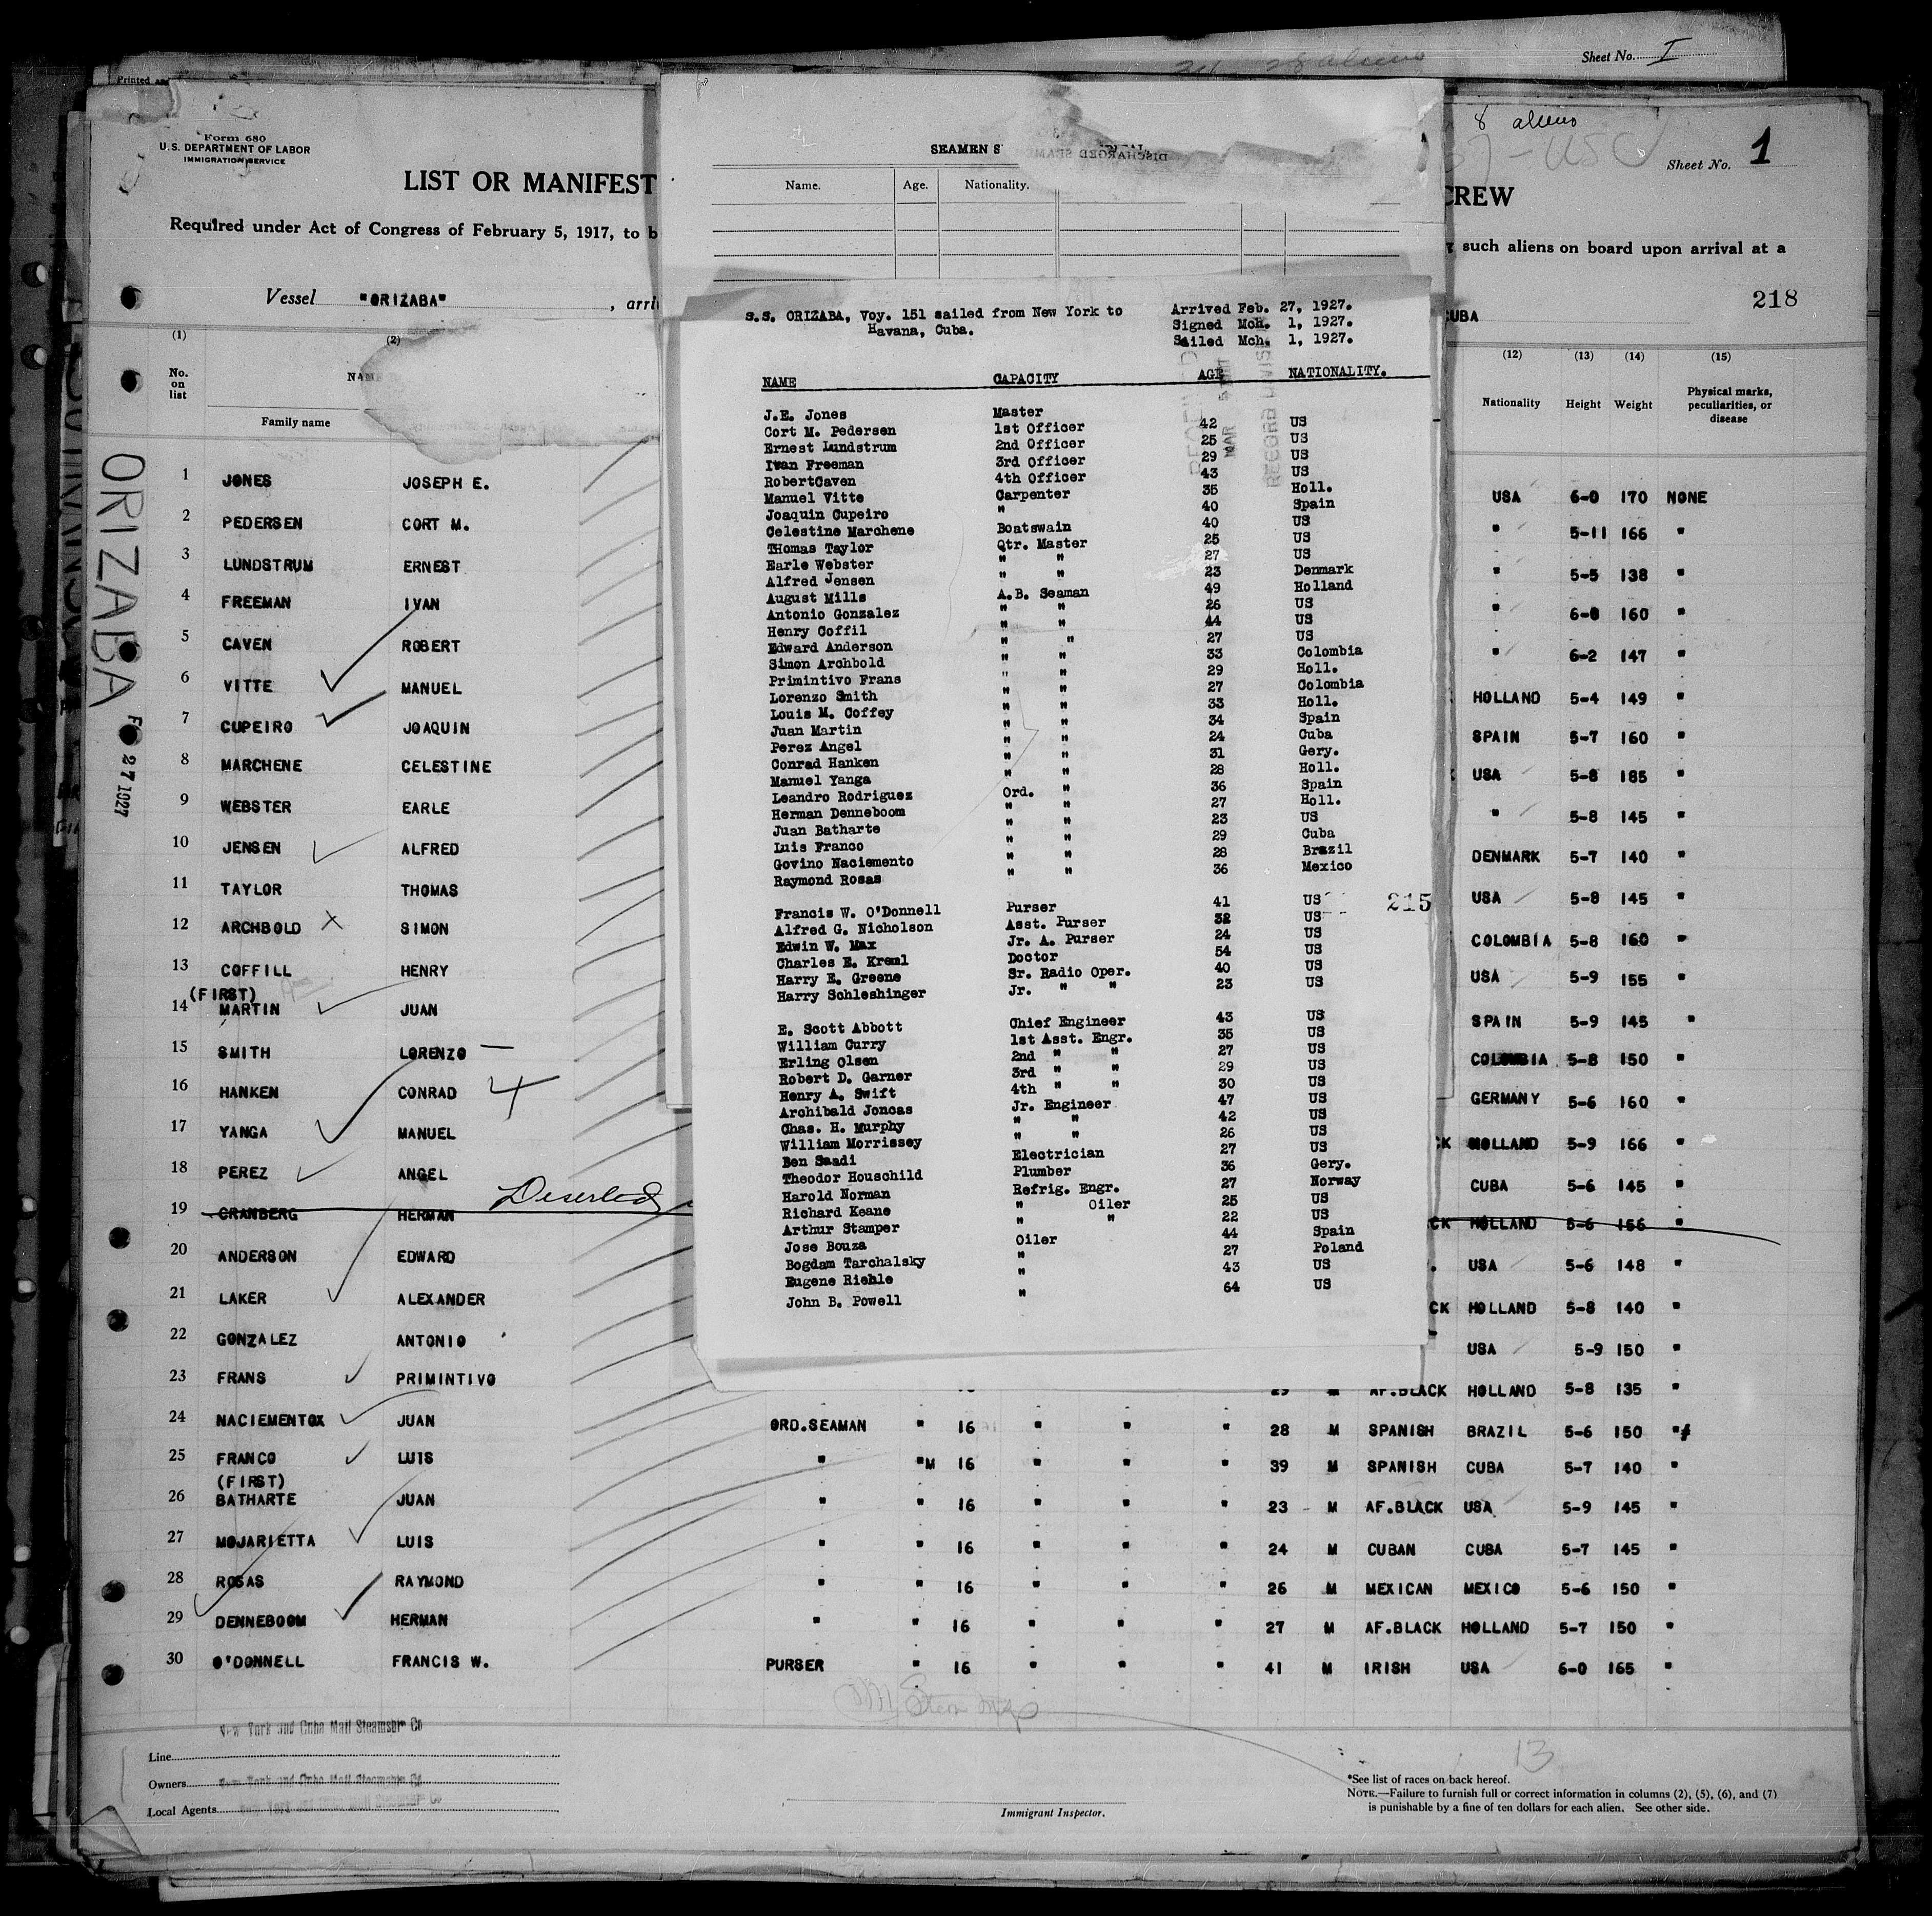 Sheet No. I
Printed
Form 680
U.S. DEPARTMENT OF LABOR
IMMIGRATION SERVICE
8 aliens
Sheet No. 1
LIST OR MANIFEST
CREW
Required under Act of Congress of February 5, 1917, to b
such aliens on board upon arrival at a
Vessel "ORIZABA" , arri
CUBA
218
SEAMEN S
DISCHARGED SEAME
Name. Age. Nationality.
S.S. ORIZABA, Voy. 151 sailed from New York to
Havana, Cuba.
Arrived Feb. 27, 1927.
Signed Mch. 1, 1927.
Sailed Mch. 1, 1927.
NAME CAPACITY AGE NATIONALITY.
J.E. Jones Master
Cort M. Pedersen 1st Officer 42 US
Ernest Lundstrum 2nd Officer 25 US
Ivan Freeman 3rd Officer 29 US
RobertCaven 4th Officer 43 US
Manuel Vitte Carpenter 35 Holl.
Joaquin Cupeiro " 40 Spain
Celestine Marchene Boatswain 40 US
THomas Taylor Qtr. Master 25 US
Earle Webster " " 27 US
Alfred Jensen " " 23 Denmark
August Mills A.B. Seaman 49 Holland
Antonio Gonzalez " " 26 US
Henry Coffil " " 44 US
Edward Anderson " " 27 US
Simon Archbold " " 33 Colombia
Primintivo Frans " " 29 Holl.
Lorenzo Smith " " 27 Colombia
Louis M. Coffey " " 33 Holl.
Juan Martin " " 34 Spain
Perez Angel " " 24 Cuba
Conrad Hanken " " 31 Gery.
Manuel Yanga " " 28 Holl.
Leandro Rodriguez Ord. " 36 Spain
Herman Denneboom " " 27 Holl.
Juan Batharte " " 23 US
Luis Franco " " 29 Cuba
Govino Naciemento " " 28 Brazil
Raymond Rosas " " 36 Mexico
Francis W. O'Donnell Purser 41 US
215
Alfred G. Nicholson Asst. Purser 32 US
Edwin W. Max Jr. A. Purser 24 US
Charles E. Kreml Doctor 54 US
Harry E. Greene Sr. Radio Oper. 40 US
Harry Schleshinger Jr. " " 23 US
E. Scott Abbott Chief Engineer 43 US
William Curry 1st Asst. Engr. 35 US
Erling Olsen 2nd " " 27 US
Robert D. Garner 3rd " " 29 US
Henry A. Swift 4th " " 30 US
Archibald Joncas Jr. Engineer 47 US
Chas. H. Murphy " " 42 US
William Morrissey " " 26 US
Ben Saadi Electrician 27 US
Theodor Houschild Plumber 36 Gery.
Harold Norman Refrig. Engr. 27 Norway
Richard Keane " Oiler 25 US
Arthur Stamper " " 22 US
Jose Bouza Oiler 44 Spain
Bogdam Tarchalsky " 27 Poland
Eugene Riehle " 43 US
John B. Powell " 64 US
(1) (2) (12) (13) (14) (15)
No. on list
Family name
Nationality Height Weight Physical marks, peculiarities, or disease
ORIZABA
27 1927
1 JONES JOSEPH E. USA 6-0 170 NONE
2 PEDERSEN CORT M. " 5-11 166 "
3 LUNDSTRUM ERNEST " 5-5 138 "
4 FREEMAN IVAN " 6-0 160 "
5 CAVEN ROBERT " 6-2 147 "
6 VITTE MANUEL HOLLAND 5-4 149 "
7 CUPEIRO JOAQUIN SPAIN 5-7 160 "
8 MARCHENE CELESTINE USA 5-8 185 "
9 WEBSTER EARLE " 5-8 145 "
10 JENSEN ALFRED DENMARK 5-7 140 "
11 TAYLOR THOMAS USA 5-8 145 "
12 ARCHBOLD SIMON COLOMBIA 5-8 160 "
13 COFFILL HENRY USA 5-9 155 "
(FIRST)
14 MARTIN JUAN SPAIN 5-9 145 "
15 SMITH LORENZO COLOMBIA 5-8 150 "
16 HANKEN CONRAD GERMANY 5-6 160 "
17 YANGA MANUEL CK HOLLAND 5-9 166 "
18 PEREZ ANGEL CUBA 5-6 145 "
19 GRANBERG HERMAN Deserted CK HOLLAND 5-6 156 "
20 ANDERSON EDWARD USA 5-6 148 "
21 LAKER ALEXANDER CK HOLLAND 5-8 140 "
22 GONZALEZ ANTONIO USA 5-9 150 "
23 FRANS PRIMINTIVO 29 M AF.BLACK HOLLAND 5-8 135 "
24 NACIEMENTOX JUAN ORD.SEAMAN " 16 " " " 28 M SPANISH BRAZIL 5-6 150 "
25 FRANCO LUIS " "M 16 " " " 39 M SPANISH CUBA 5-7 140 "
(FIRST)
26 BATHARTE JUAN " " 16 " " " 23 M AF.BLACK USA 5-9 145 "
27 MOJARIETTA LUIS " " 16 " " " 24 M CUBAN CUBA 5-7 145 "
28 ROSAS RAYMOND " " 16 " " " 26 M MEXICAN MEXICO 5-6 150 "
29 DENNEBOOM HERMAN " " 16 " " " 27 M AF.BLACK HOLLAND 5-7 150 "
30 O'DONNELL FRANCIS W. PURSER " 16 " " " 41 M IRISH USA 6-0 165 "
New York and Cuba Mail Steamship Co
Line
Owners New York and Cuba Mail Steamship Co
Local Agents New York and Cuba Mail Steamship Co
Immigrant Inspector.
13
*See list of races on back hereof.
NOTE.—Failure to furnish full or correct information in columns (2), (5), (6), and (7)
is punishable by a fine of ten dollars for each alien. See other side.